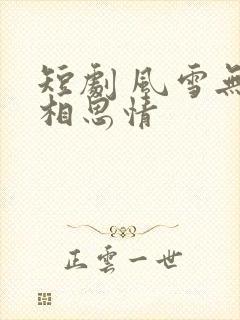 短劇風雪無
相思情
正雲一世